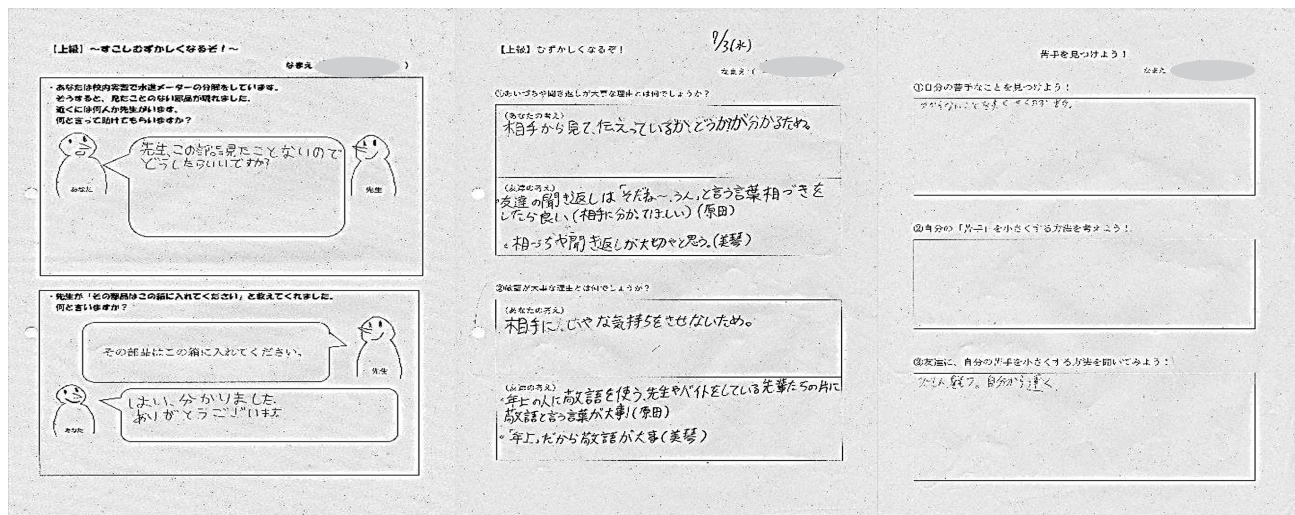 【上級】～すこしむずかしくなるぞ！～
なまえ ）
・あなたは校内実習で水道メーターの分解をしています。
そうすると、見たことのない部品が現れました。
近くには何人か先生がいます。
何と言って助けてもらいますか？
先生、この部品見たことないので
どうしたらいいですか？
あなた
先生
・先生が「その部品はこの箱に入れてください」と教えてくれました。
何と言いますか？
その部品はこの箱に入れてください。
先生
はい、分かりました
ありがとうございます
あなた
【上級】むずかしくなるぞ！
9/3(水)
なまえ（
①あいづちや聞き返しが大事な理由とは何でしょうか？
（あなたの考え）
相手から見て、伝えっているか、どうかが分かるため。
（友達の考え）
・友達の聞き返しは「そだね～、うん」と言う言葉相づきを
したら良い（相手に分かってほしい）（原田）
・相づちや聞き返しが大切やと思う。（美琴）
②敬語が大事な理由とは何でしょうか？
（あなたの考え）
相手に、いやな気持ちをさせないため。
（友達の考え）
・年上の人に敬語を使う、先生やバイトをしている先輩たちの
敬語と言う言葉が大事！（原田）
・「年上」だから敬語が大事（美琴）
苦手を見つけよう！
なまえ
①自分の苦手なことを見つけよう！
わからないことを
②自分の「苦手」を小さくする方法を考えよう！
③友達に、自分の苦手を小さくする方法を聞いてみよう！
自分から